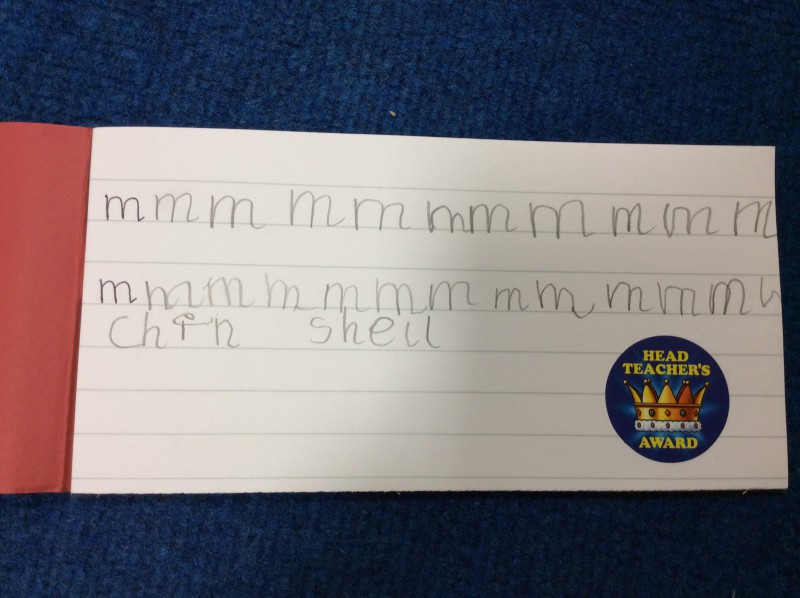 m m m m m m m m m m m
m m m m m m m m m m m m
chin shell
HEAD
TEACHER'S
AWARD